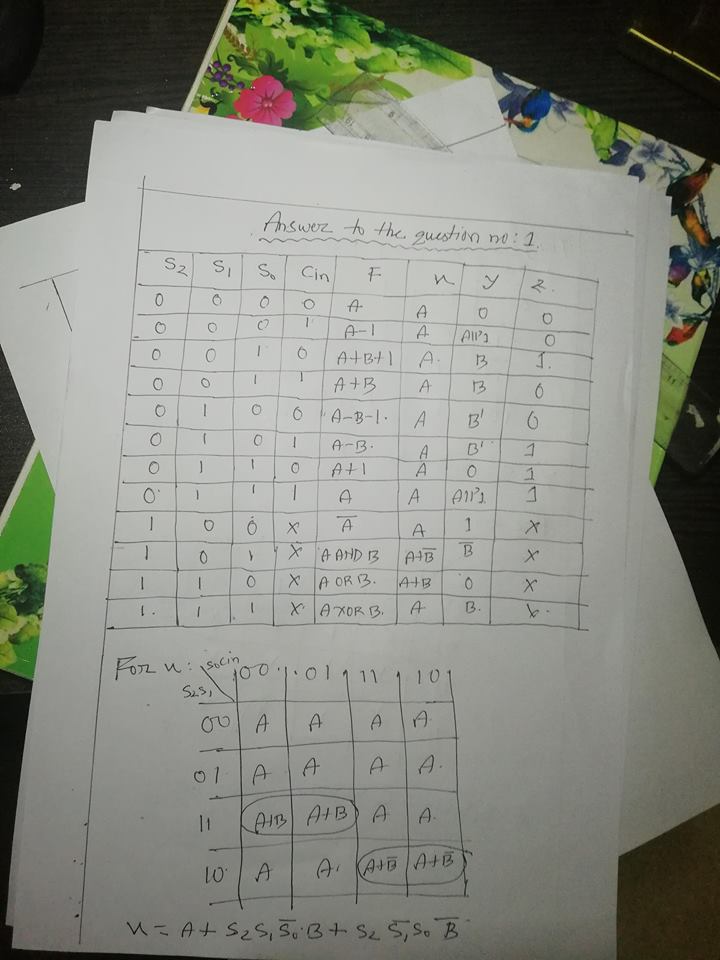 Answer to the question no: 1.
S2 S1 S0 Cin F x y z.
0 0 0 0 A A 0 0
0 0 0 1 A-1 A All 1 0
0 0 1 0 A+B+1 A. B 1.
0 0 1 1 A+B A B 0
0 1 0 0 A-B-1. A B' 0
0 1 0 1 A-B. A B' 1
0 1 1 0 A+1 A 0 1
0. 1 1 1 A A All 1 1
1 0 0 X A̅ A 1 X
1 0 1 X A AND B A+B̅ B̅ X
1 1 0 X A OR B. A+B 0 X
1. 1 1 X. A XOR B. A B. X.
For x: S0Cin 00. .01 11 10
S2S1
00 A A A A.
01. A. A A A.
11 A+B A+B A A.
10. A A. A+B̅ A+B̅
x = A + S2 S1 S̅0.B + S2 S̅1 S0 B̅